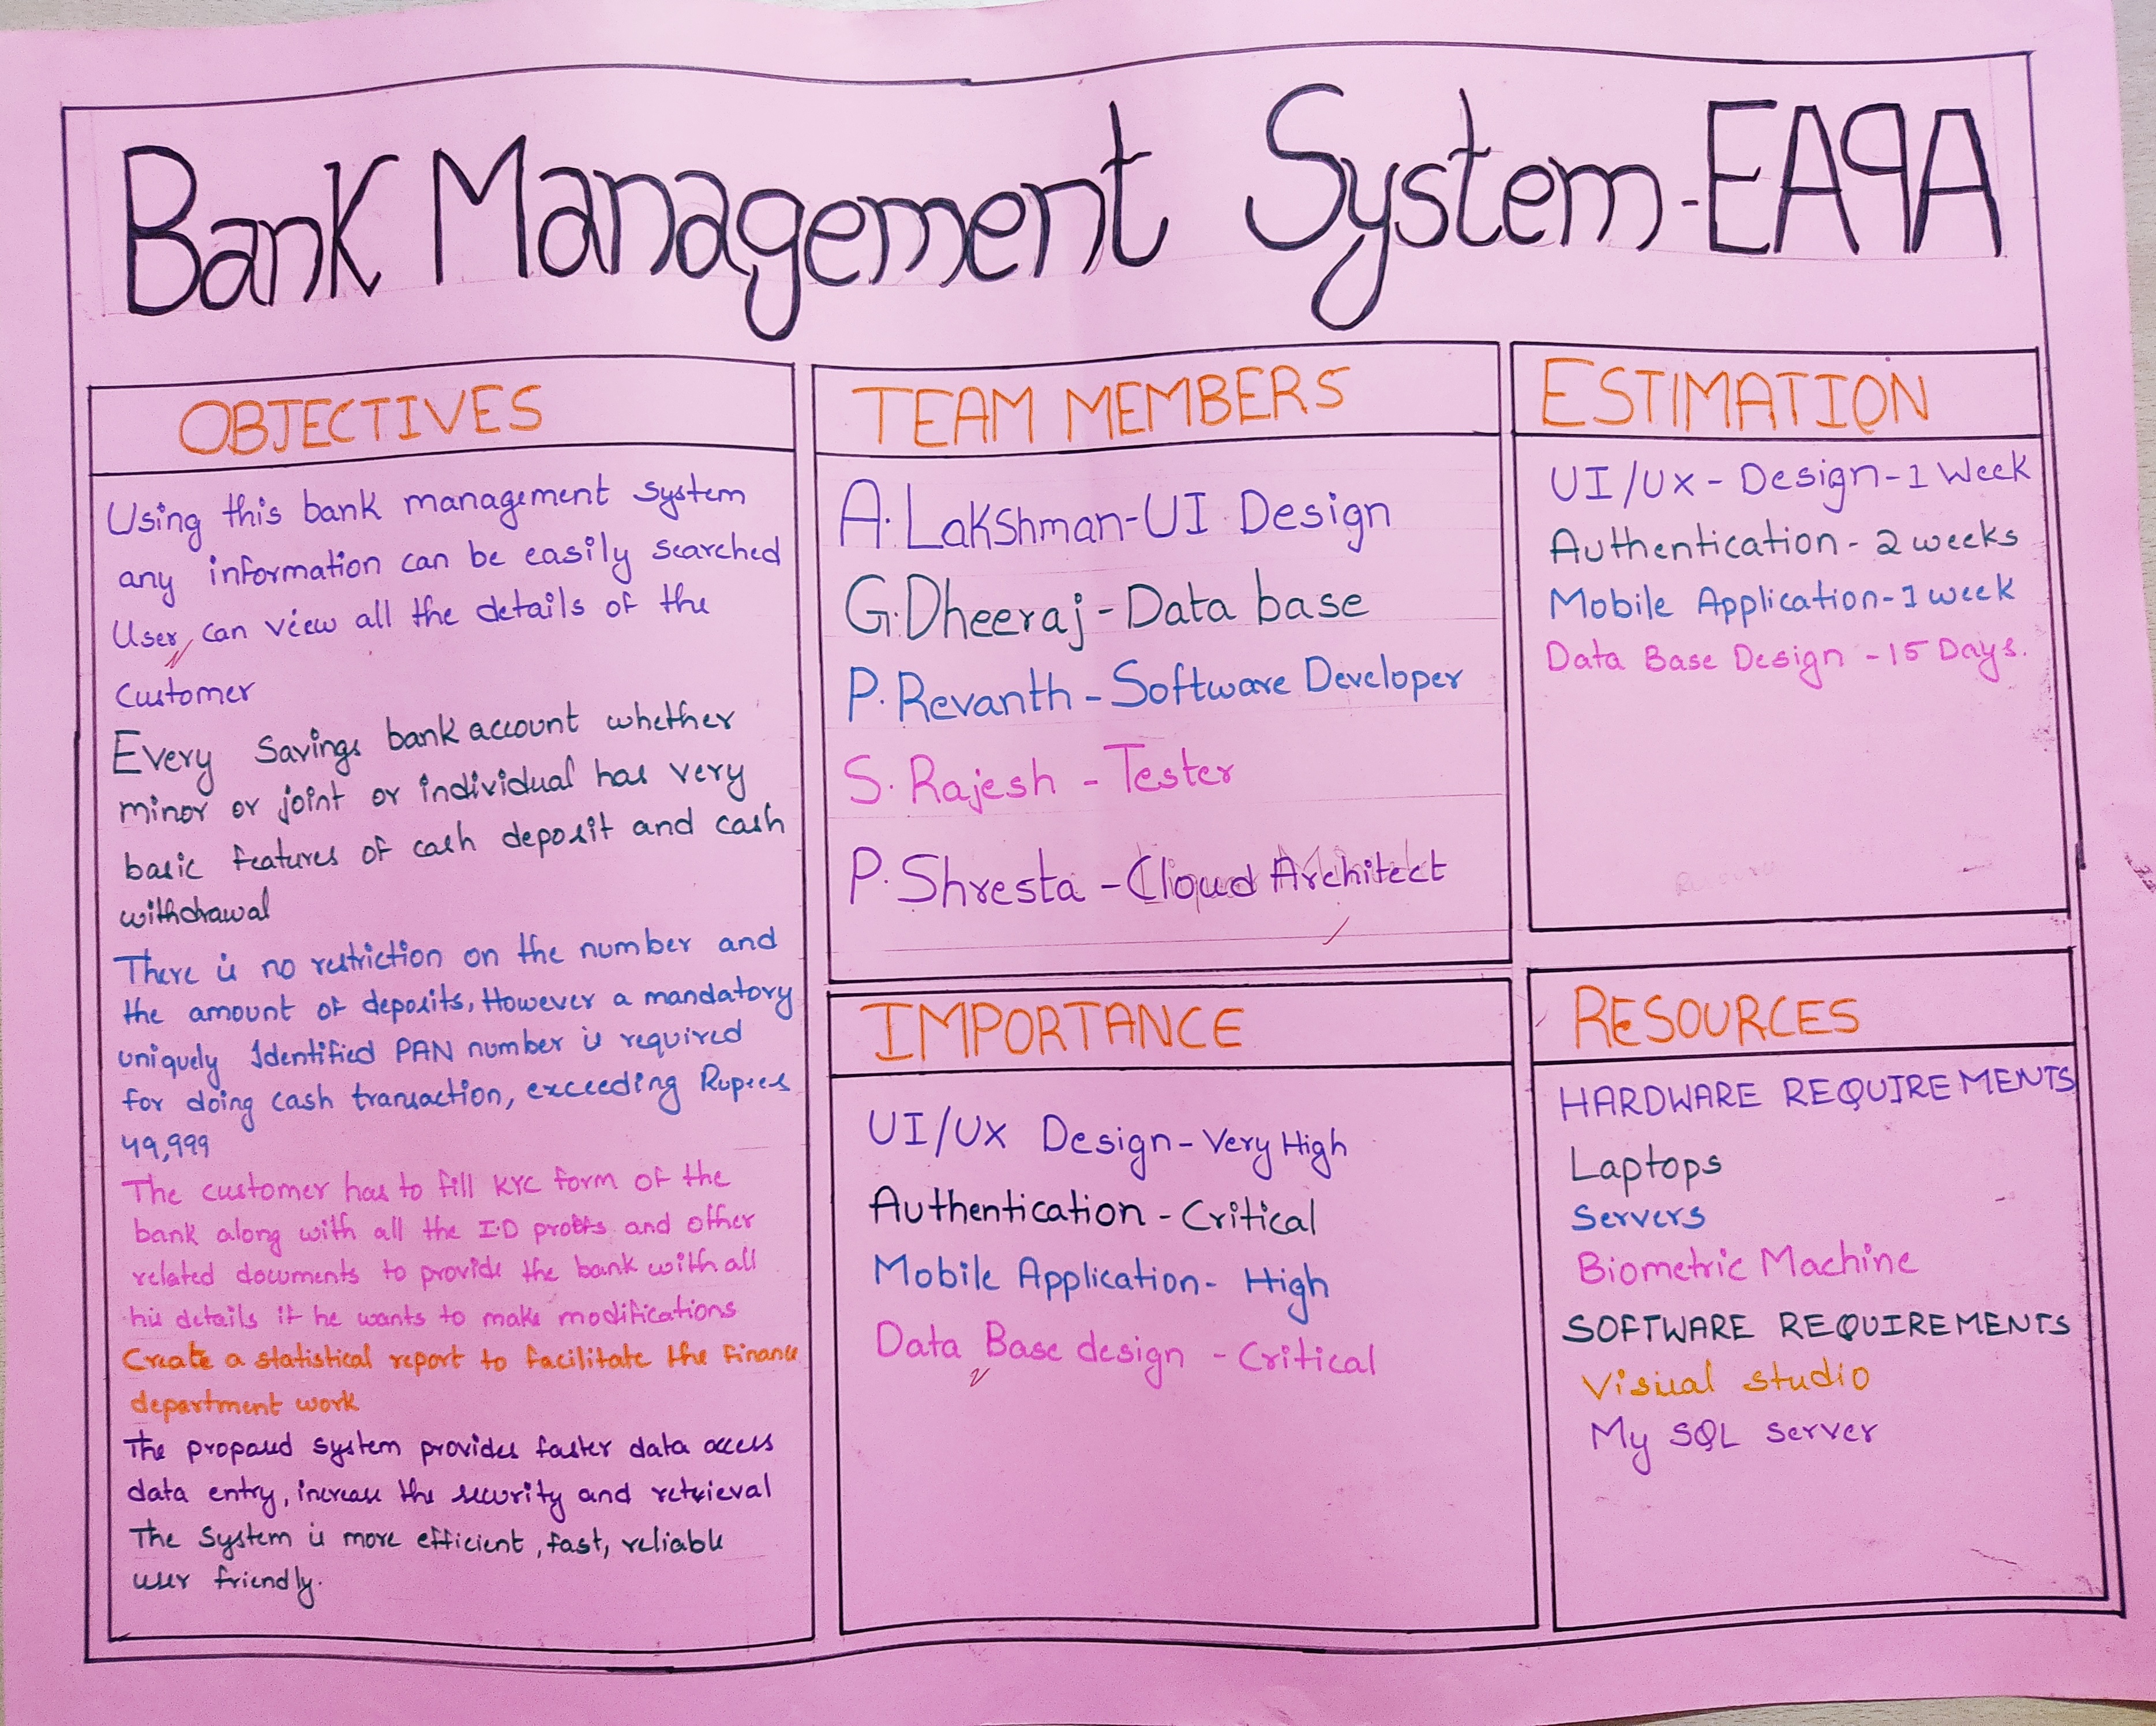 Bank Management System-EA9A
OBJECTIVES
Using this bank management system
any information can be easily searched
User, can view all the details of the
Customer
Every Savings bank account whether
minor or joint or individual has very
basic features of cash deposit and cash
withdrawal
There is no restriction on the number and
the amount of deposits, However a mandatory
uniquely Identified PAN number is required
for doing cash transaction, exceeding Rupees
49,999
The customer has to fill KYC form of the
bank along with all the I.D proofs and other
related documents to provide the bank with all
his details if he wants to make modifications
Create a statistical report to facilitate the Finance
department work
The propased system provides faster data access
data entry, increase the security and retrieval
The System is more efficient, fast, reliable
user friendly.
TEAM MEMBERS
A. Lakshman-UI Design
G. Dheeraj - Data base
P. Revanth - Software Developer
S. Rajesh - Tester
P. Shresta - Cloud Architect
IMPORTANCE
UI/UX Design - Very High
Authentication - Critical
Mobile Application - High
Data Base design - Critical
ESTIMATION
UI/UX - Design - 1 Week
Authentication - 2 weeks
Mobile Application - 1 week
Data Base Design - 15 Days.
RESOURCES
HARDWARE REQUIREMENTS
Laptops
Servers
Biometric Machine
SOFTWARE REQUIREMENTS
Visual studio
My SQL Server